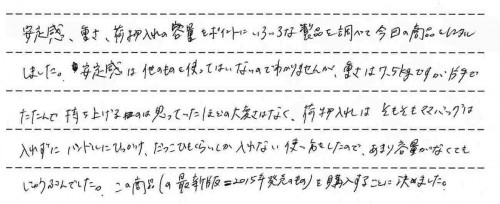 安定感、重さ、荷物入れの容量をポイントにいろいろな製品を調べて今回の商品に
しました。安定感は他のものを使ってはいないのでわかりませんが、重さは7.5kgですが片手で
たたんで持ち上げるのは思っていたほどの大変さはなく、荷物入れはそもそもママバッグは
入れずにハンドルにひっかけ、だっこひもくらいしか入れない使い方をしたので、あまり容量がなくても
じゅうぶんでした。この商品(の最新版=2015年発売のもの)を購入することに決めました。